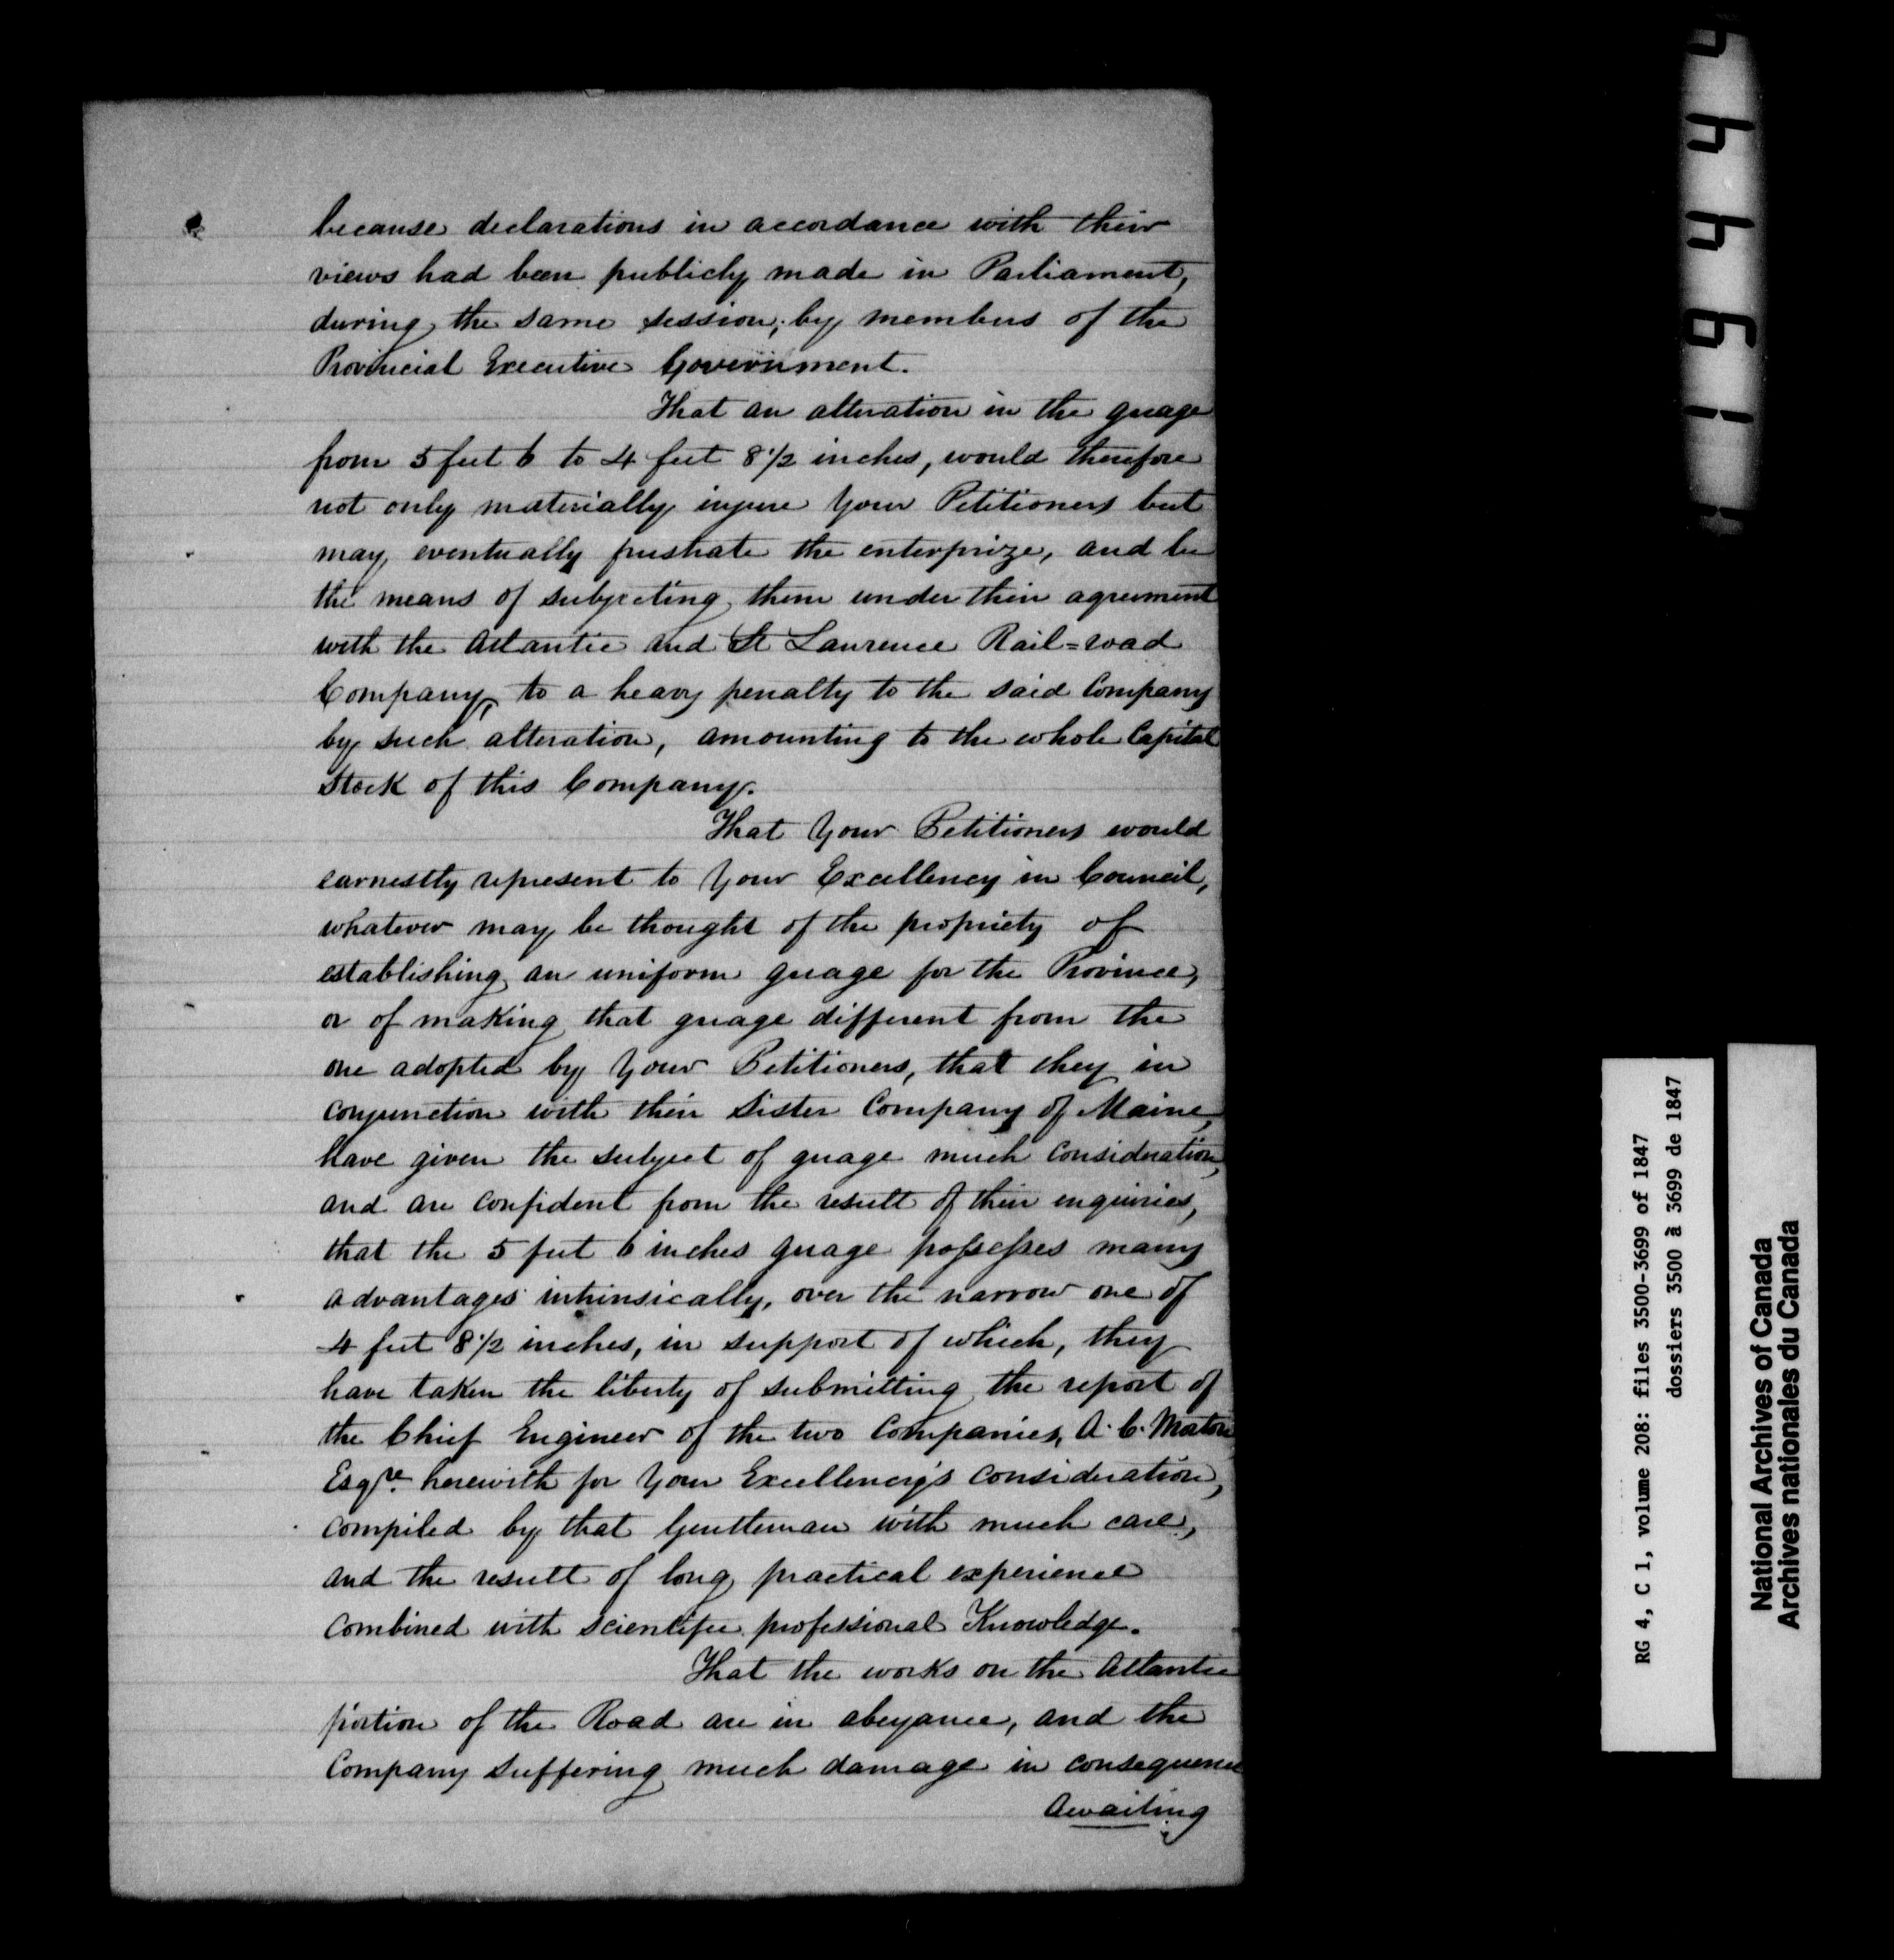 because declarations in accordance with their
views had been publicly made in Parliament,
during the same session, by members of the
Provincial Executive Government.
That an alteration in the guage
from 5 feet 6 to 4 feet 8 1/2 inches, would therefore
not only materially injure Your Petitioners but
may eventually frustrate the enterprize, and be
the means of subjecting them under their agreement
with the Atlantic and St Laurence Rail=road
Company, to a heavy penalty to the said Company
by such alteration, amounting to the whole Capital
Stock of this Company.
That Your Petitioners would
earnestly represent to Your Excellency in Council,
whatever may be thought of the propriety of
establishing an uniform guage for the Province,
or of making that guage different from the
one adopted by Your Petitioners, that they in
conjunction with their Sister Company of Maine,
have given the subject of guage much consideration,
and are confident from the result of their enquiries,
that the 5 feet 6 inches guage possesses many
advantages intrinsically, over the narrow one of
4 feet 8 1/2 inches, in support of which, they
have taken the liberty of submitting the report of
the Chief Engineer of the two Companies, A. C. Morton
Esqre. herewith for Your Excellency's consideration,
compiled by that Gentleman with much care,
and the result of long practical experience
combined with scientific professional Knowledge.
That the works on the Atlantic
portion of the Road are in abeyance, and the
Company suffering much damage in consequence
Awaiting
RG 4, C 1, volume 208: files 3500-3699 of 1847
dossiers 3500 à 3699 de 1847
National Archives of Canada
Archives nationales du Canada